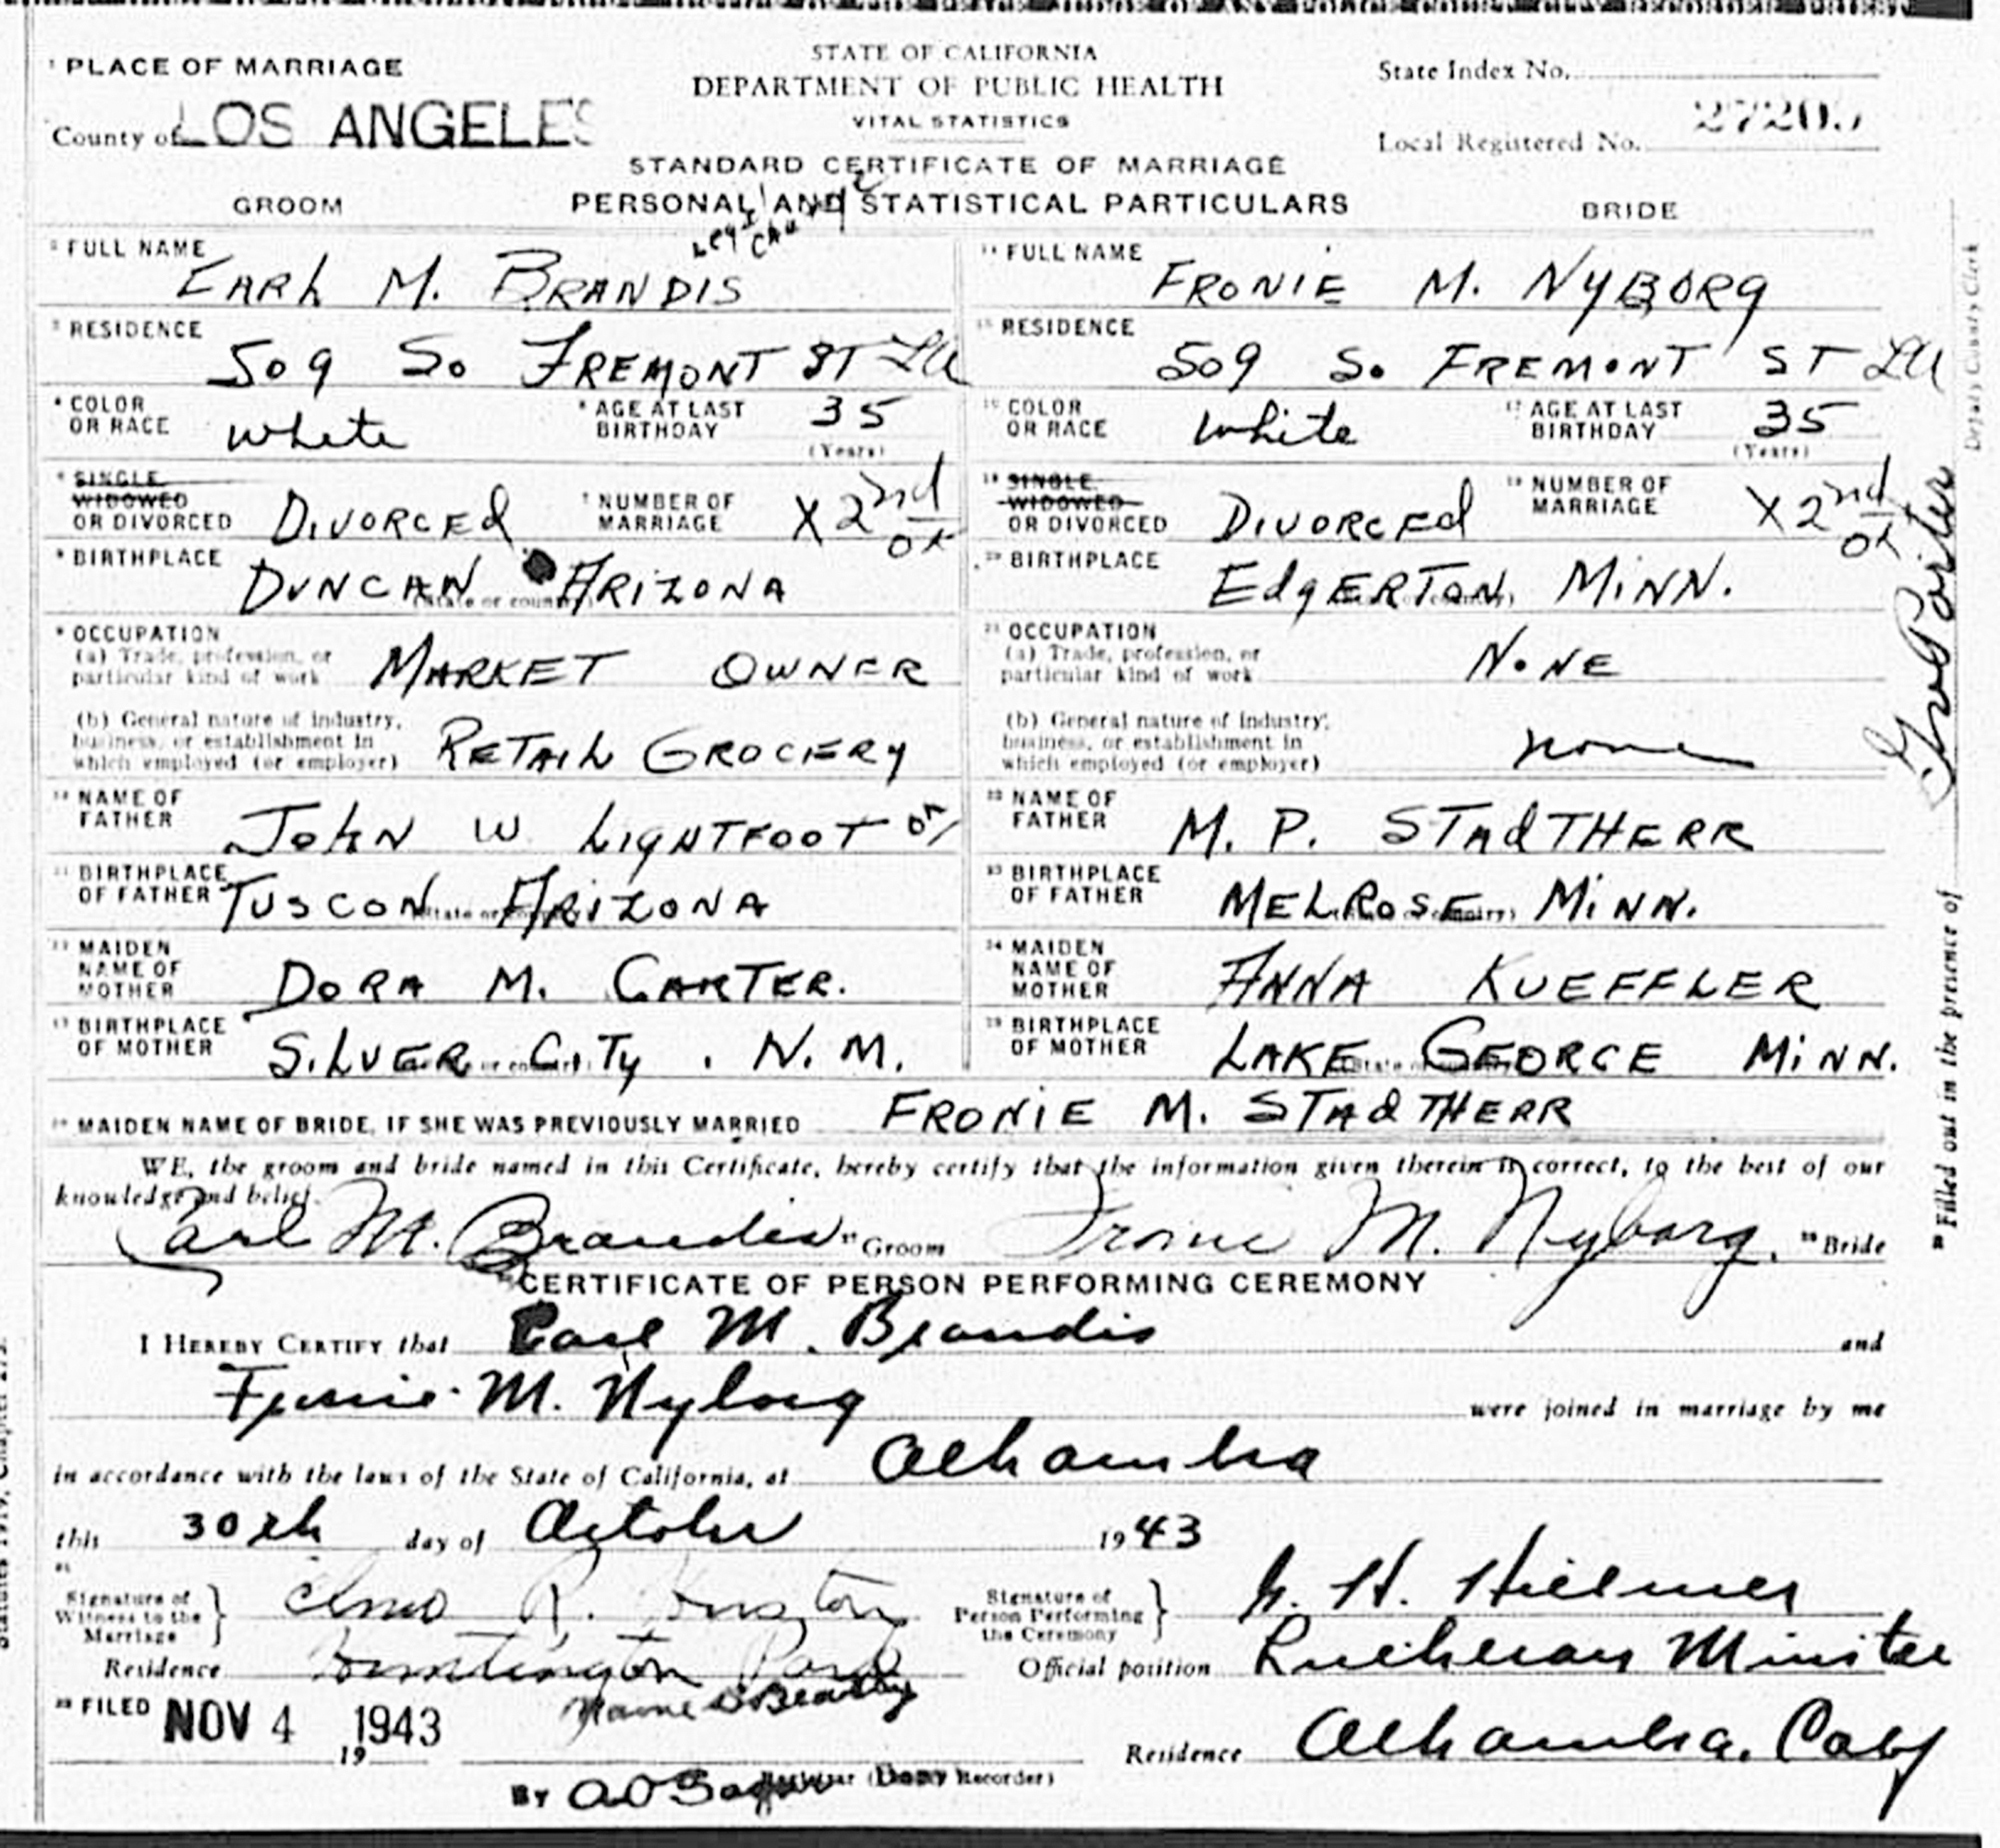 STATE OF CALIFORNIA
DEPARTMENT OF PUBLIC HEALTH
VITAL STATISTICS
STANDARD CERTIFICATE OF MARRIAGE
PERSONAL AND STATISTICAL PARTICULARS
1 PLACE OF MARRIAGE
County of LOS ANGELES
State Index No.
Local Registered No. 2720
GROOM
Legal Cha
2 FULL NAME EARL M. BRANDIS
3 RESIDENCE 509 So FREMONT ST LA
4 COLOR OR RACE White 5 AGE AT LAST BIRTHDAY 35 (Years)
6 SINGLE WIDOWED OR DIVORCED DIVORCEd 7 NUMBER OF MARRIAGE X 2nd OK
8 BIRTHPLACE DUNCAN ARIZONA
(State or country)
9 OCCUPATION
(a) Trade, profession, or particular kind of work MARKET OWNER
(b) General nature of industry, business, or establishment in which employed (or employer) RETAIL GROCERY
10 NAME OF FATHER JOHN W LIGHTFOOT OK
11 BIRTHPLACE OF FATHER TUSCON ARIZONA
(State or country)
12 MAIDEN NAME OF MOTHER DORA M. CARTER.
13 BIRTHPLACE OF MOTHER SILVER CITY . N. M.
BRIDE
14 FULL NAME FRONIE M. NYBORG
15 RESIDENCE 509 So. FREMONT ST LA
16 COLOR OR RACE White 17 AGE AT LAST BIRTHDAY 35 (Years)
18 SINGLE WIDOWED OR DIVORCED DIVORCEd 19 NUMBER OF MARRIAGE X 2nd OK
20 BIRTHPLACE EdgERTON, MINN.
21 OCCUPATION
(a) Trade, profession, or particular kind of work NONE
(b) General nature of industry, business, or establishment in which employed (or employer) none
22 NAME OF FATHER M. P. STAdTHERR
23 BIRTHPLACE OF FATHER MELROSE MINN.
24 MAIDEN NAME OF MOTHER ANNA KUEFFLER
25 BIRTHPLACE OF MOTHER LAKE GEORGE MINN.
26 MAIDEN NAME OF BRIDE, IF SHE WAS PREVIOUSLY MARRIED FRONIE M. STAdTHERR
WE, the groom and bride named in this Certificate, hereby certify that the information given therein is correct, to the best of our
knowledge and belief.
Earl M. Brandis Groom Fronie M. Nyborg. Bride
CERTIFICATE OF PERSON PERFORMING CEREMONY
I HEREBY CERTIFY that Earl M. Brandis and
Fronie M. Nyborg were joined in marriage by me
in accordance with the laws of the State of California, at Alhambra
this 30th day of October 1943
Signature of Witness to the Marriage R.
Residence Huntington Park
Signature of Person Performing the Ceremony H. Hillmer
Official position Lutheran Minister
Residence Alhambra. Calif
FILED NOV 4 1943
19
Mame B Beatty
(Recorder)
BY
Filled out in the presence of
Deputy County Clerk
Statutes 1919, Chapter